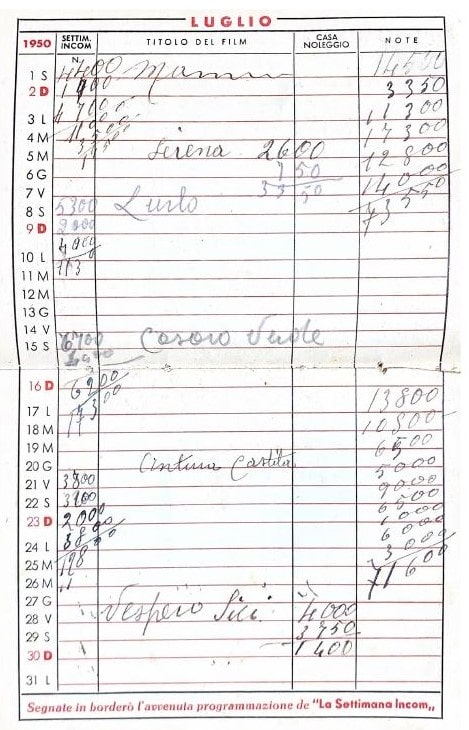 LUGLIO
1950 SETTIM. INCOM N. TITOLO DEL FILM CASA NOLEGGIO NOTE
1 S 4400 14500
2 D 1900 3350
3 L 4700 11300
4 M 17300
5 M Serena 2600 12800
6 G 750 14000
7 V 3350 73550
8 S 5300 Lurlo
9 D 2000
10 L 4000
11 M 113
12 M
13 G
14 V
15 S 6700 Casaro Verde
16 D 6200
17 L 13800
18 M 10800
19 M 6500
20 G Cintura Castita 5000
21 V 3800 9000
22 S 3100 6500
23 D 2000 1000
24 L 3800 6000
25 M 128 3000
26 M 71600
27 G
28 V Vespero Sici 4000
29 S 3750
30 D 1400
31 L
Segnate in borderò l'avvenuta programmazione de "La Settimana Incom„